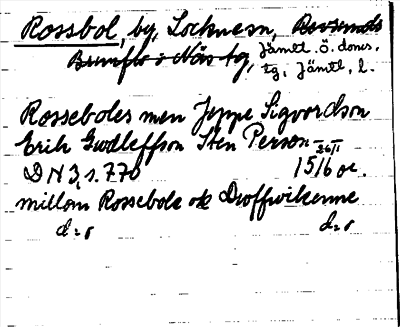 Rossbol, by, Locknesn, Revsunds
Brunflo o Näs tg, Jämtl. ö. doms.
tg, Jämtl. l.
Rosseboles men Jeppe Sigvordson
Erik Gudleffson Sten Person 26/1
DN 3, s. 770 1516 or.
millom Rossebole ok Droffwikenne
d:o d:o